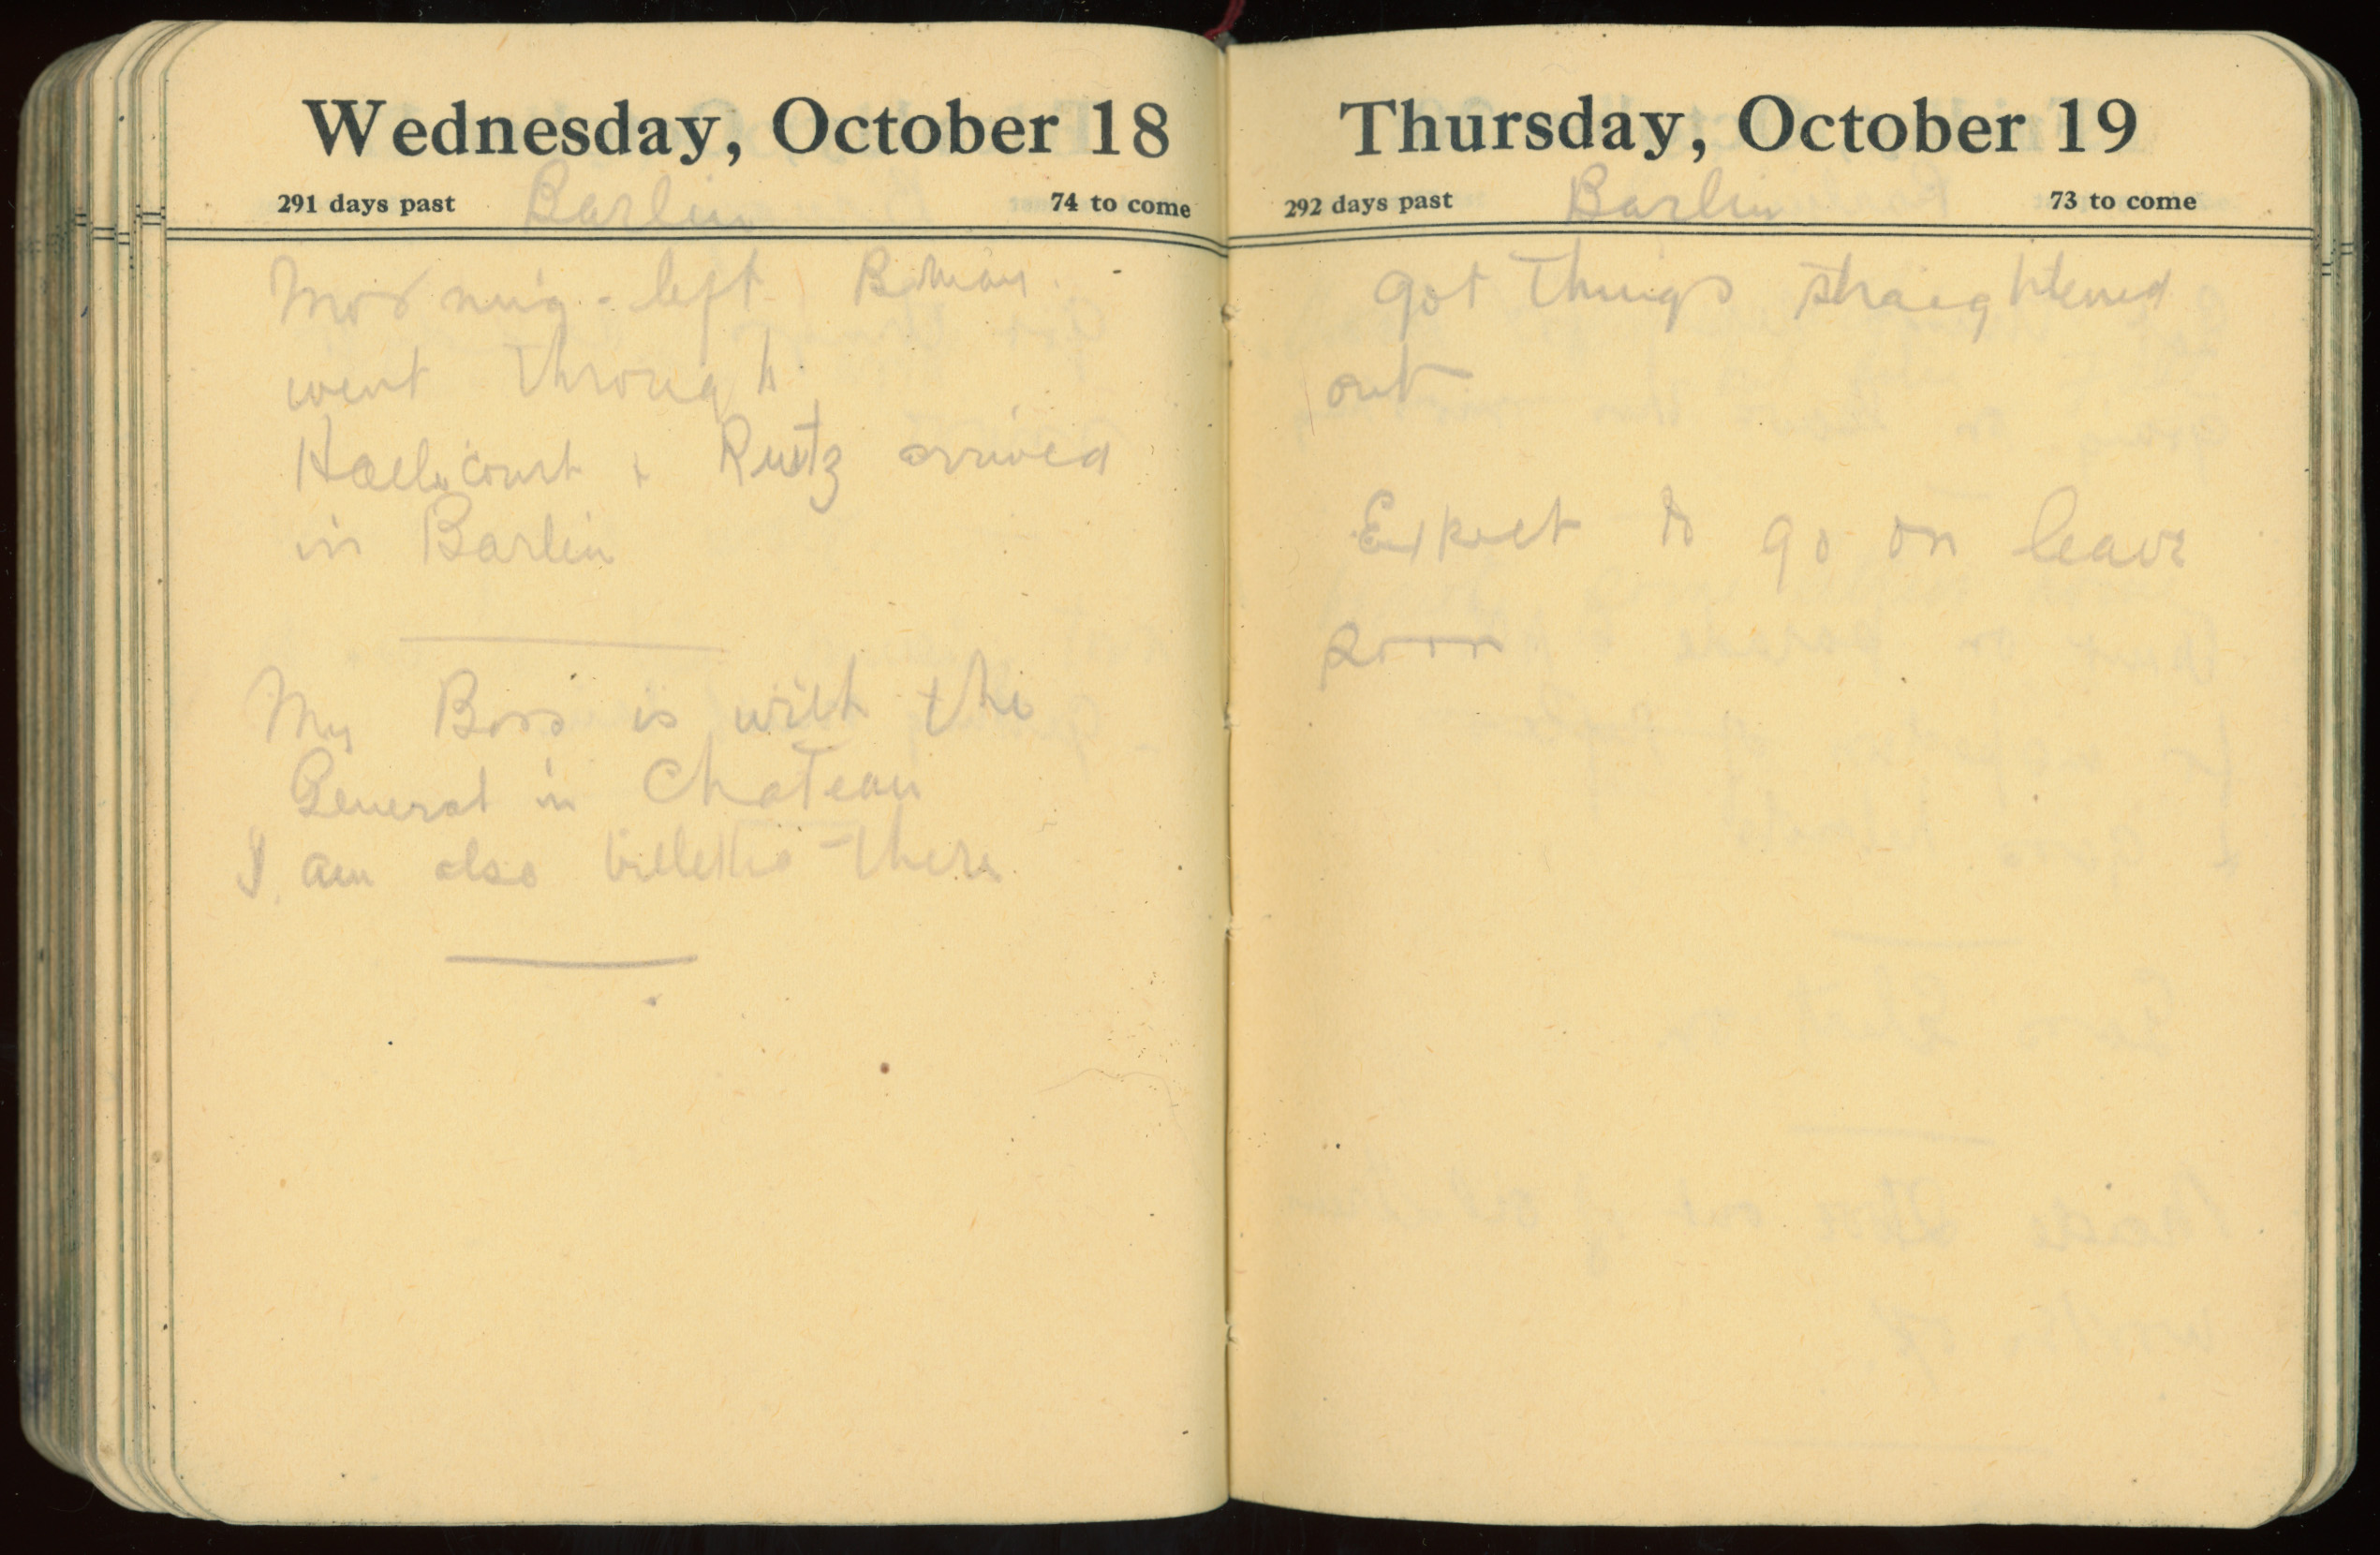 Wednesday, October 18
291 days past Barlin 74 to come
Morning - left
went through
Haillicourt + Ruitz arrived
in Barlin
My Boss is with the
General in Chateau
I am also billetted there
Thursday, October 19
292 days past Barlin 73 to come
got things straightened
out
Expect to go on leave
soon